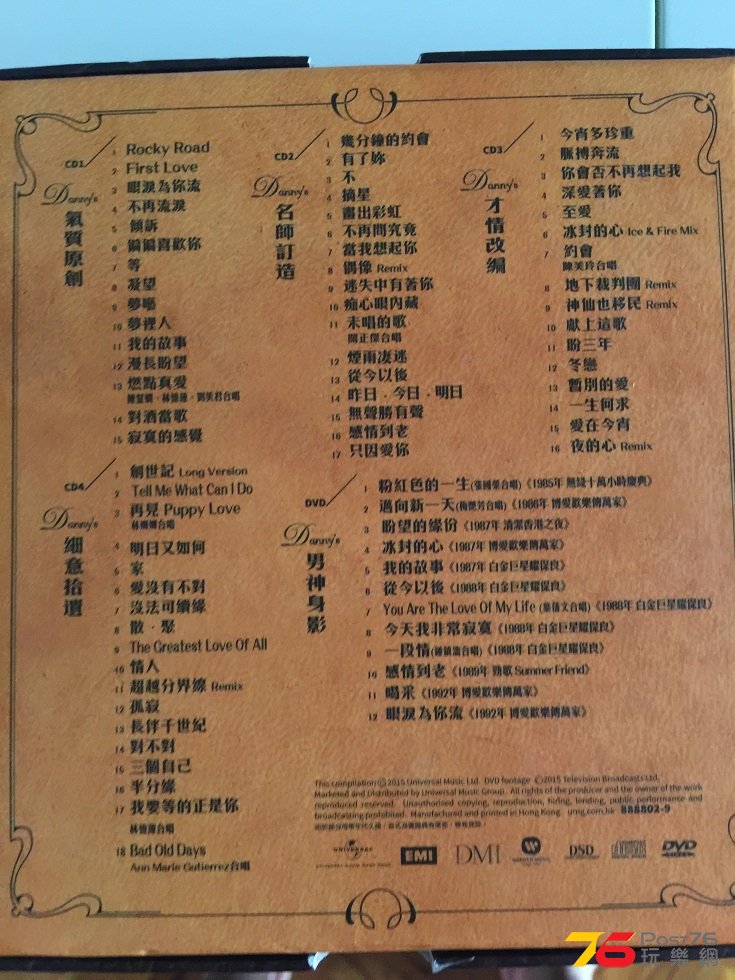 CD1
Danny's
氣質原創
1 Rocky Road
2 First Love
3 眼淚為你流
4 不再流淚
5 傾訴
6 偏偏喜歡你
7 等
8 凝望
9 夢囈
10 夢裡人
11 我的故事
12 漫長盼望
13 燃點真愛
陳慧嫻·林憶蓮·劉美君合唱
14 對酒當歌
15 寂寞的感覺
CD2
Danny's
名師訂造
1 幾分鐘的約會
2 有了妳
3 不
4 摘星
5 畫出彩虹
6 不再問究竟
7 當我想起你
8 偶像 Remix
9 迷失中有著你
10 痴心眼內藏
11 未唱的歌
關正傑合唱
12 煙雨凄迷
13 從今以後
14 昨日．今日．明日
15 無聲勝有聲
16 感情到老
17 只因愛你
CD3
Danny's
才情改編
1 今宵多珍重
2 脈搏奔流
3 你會否不再想起我
4 深愛著你
5 至愛
6 冰封的心 Ice & Fire Mix
7 約會
陳美玲合唱
8 地下裁判團 Remix
9 神仙也移民 Remix
10 獻上這歌
11 盼三年
12 冬戀
13 暫別的愛
14 一生何求
15 愛在今宵
16 夜的心 Remix
CD4
Danny's
細意拾遺
1 創世記 Long Version
2 Tell Me What Can I Do
3 再見 Puppy Love
4 明日又如何
5 家
6 愛沒有不對
7 沒法可續緣
8 散．聚
9 The Greatest Love Of All
10 情人
11 超越分界線 Remix
12 孤寂
13 長伴千世紀
14 對不對
15 三個自己
16 半分緣
17 我要等的正是你
林憶蓮合唱
18 Bad Old Days
Ann Marie Gutierrez合唱
DVD
Danny's
男神身影
1 粉紅色的一生(張國榮合唱)《1985年 無綫十萬小時慶典》
2 邁向新一天(梅艷芳合唱)《1986年 博愛歡樂傳萬家》
3 盼望的緣份《1987年 清潔香港之夜》
4 冰封的心《1987年 博愛歡樂傳萬家》
5 我的故事《1987年 白金巨星耀保良》
6 從今以後《1988年 白金巨星耀保良》
7 You Are The Love Of My Life (葉蒨文合唱)《1988年 白金巨星耀保良》
8 今天我非常寂寞《1988年 白金巨星耀保良》
9 一段情(鍾鎮濤合唱)《1988年 白金巨星耀保良》
10 感情到老《1989年 勁歌 Summer Friend》
11 喝采《1992年 博愛歡樂傳萬家》
12 眼淚為你流《1992年 博愛歡樂傳萬家》
This compilation Ⓟ 2015 Universal Music Ltd. DVD footage ©2015 Television Broadcasts Ltd.
Marketed and Distributed by Universal Music Group. All rights of the producer and the owner of the work
reproduced reserved. Unauthorised copying, reproduction, hiring, lending, public performance and
broadcasting prohibited. Manufactured and printed in Hong Kong umg.com.hk 888802-9
UNIVERSAL
EMI
DMI
WARNER MUSIC
DSD
DVD
76 Post76
玩樂網